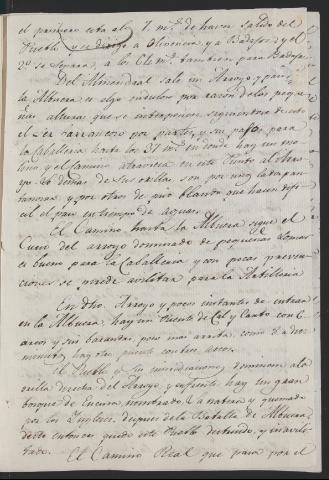 el primero esta al 7. m.s de haver salido del
Pueblo y se dirige a Olivencia, y a Badajoz y el
2º se separa a los m.s tambien para Badajoz.
Del Almendral sale un Arroyo y para
la Albuera es algo ondulos por razon de las peque
ñas alturas que se interponen
el ser barrancoso por partes y su paso para
la Caballeria hasta los 31 m.s en donde hay un mo
lino y el camino atraviesa en este Punto al Arro
yo lo demas de sus orillas son por muy la tapan
tanosas y por otras de piso blando que hacen difi
cil el paso en tiempo de aguas.
El Camino hasta la Albuera sigue el
Curso del arroyo dominado de pequeñas lomas
es bueno para la Caballeria y con pocas preven
ciones se puede avilitar para la Artilleria
En dho. Arroyo y pocos instantes de entrar
en la Albuera, hay un Puente de Cal y Canto con
arcos y sin barandas, poco mas arriba, como à
minutos, hay otro puente con tres arcos.
El Pueblo y sus inmediaciones dominan à la
orilla derecha del Arroyo, y enfrente hay un gran
bosque de Encina nombrado La natera y quemado
por los Ingleses, despues de la Batalla de Albuera
desde entonces quedó este Pueblo destruido, y inavili
tado.
El Camino Real que pasa por el